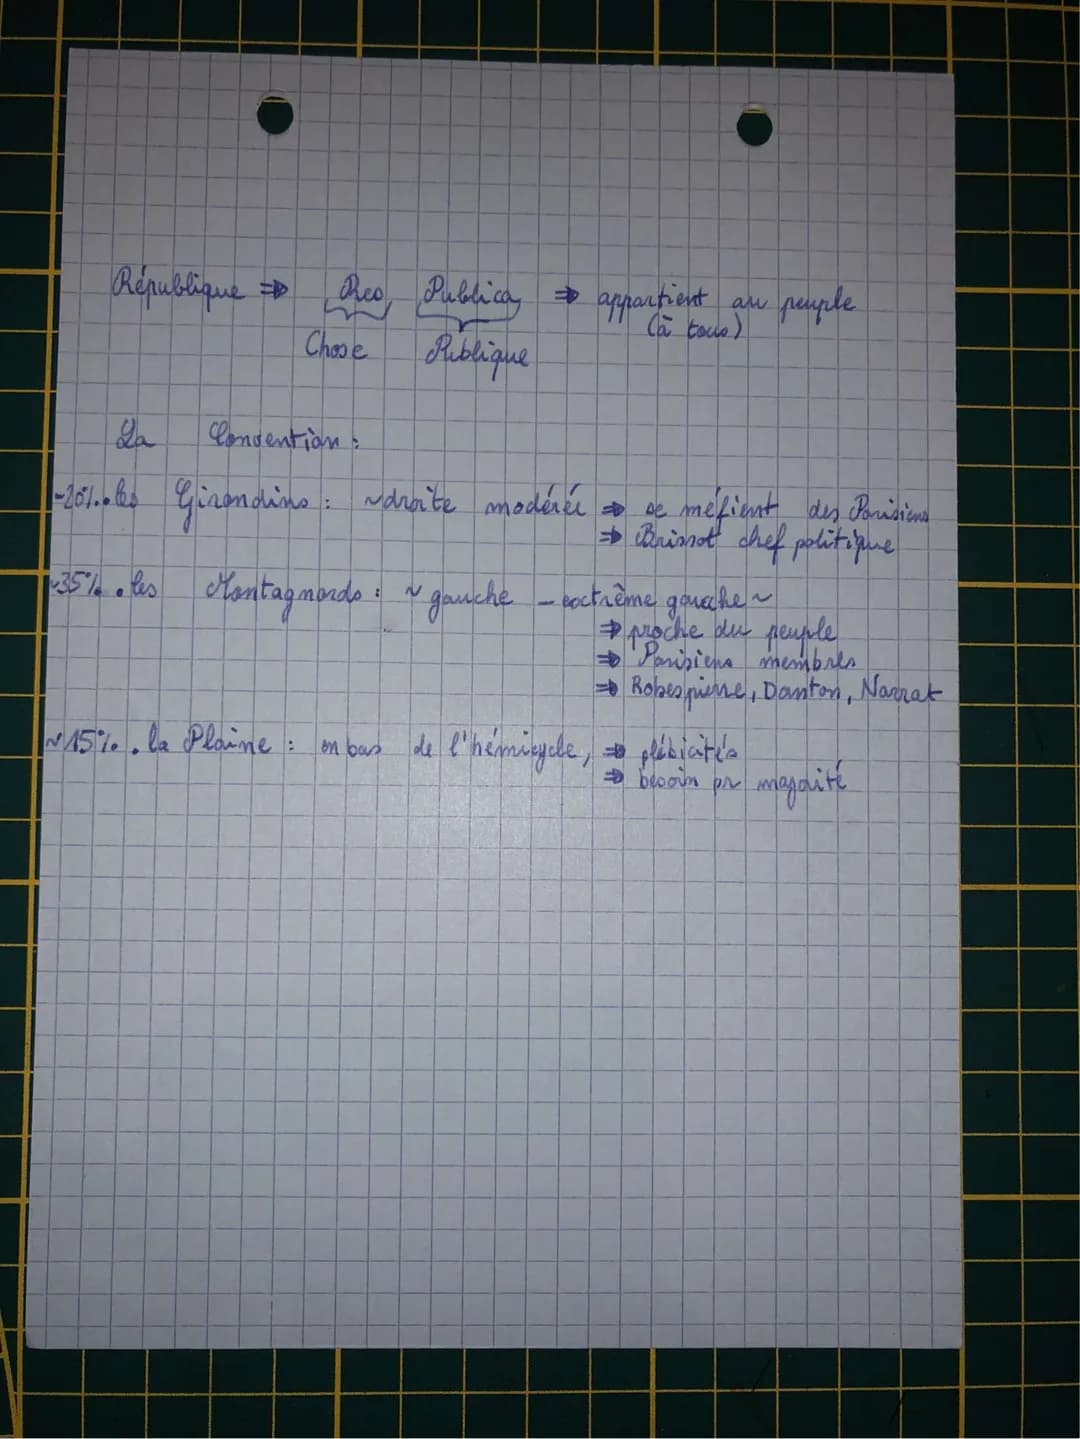 République ⇒ Res Publica ⇒ appartient au peuple
(à tous)
Chose Publique
La Convention :
~20% • les Girondins : ~droite modérée ⇒ se méfient des Parisiens
⇒ Brissot chef politique
~35% • les Montagnards : ~ gauche - extrême gauche ~
⇒ proche du peuple
⇒ Parisiens membres
⇒ Robespierre, Danton, Narrat
~15% • la Plaine : en bas de l'hémicycle, ⇒ plébicités
⇒ besoin pr majorité